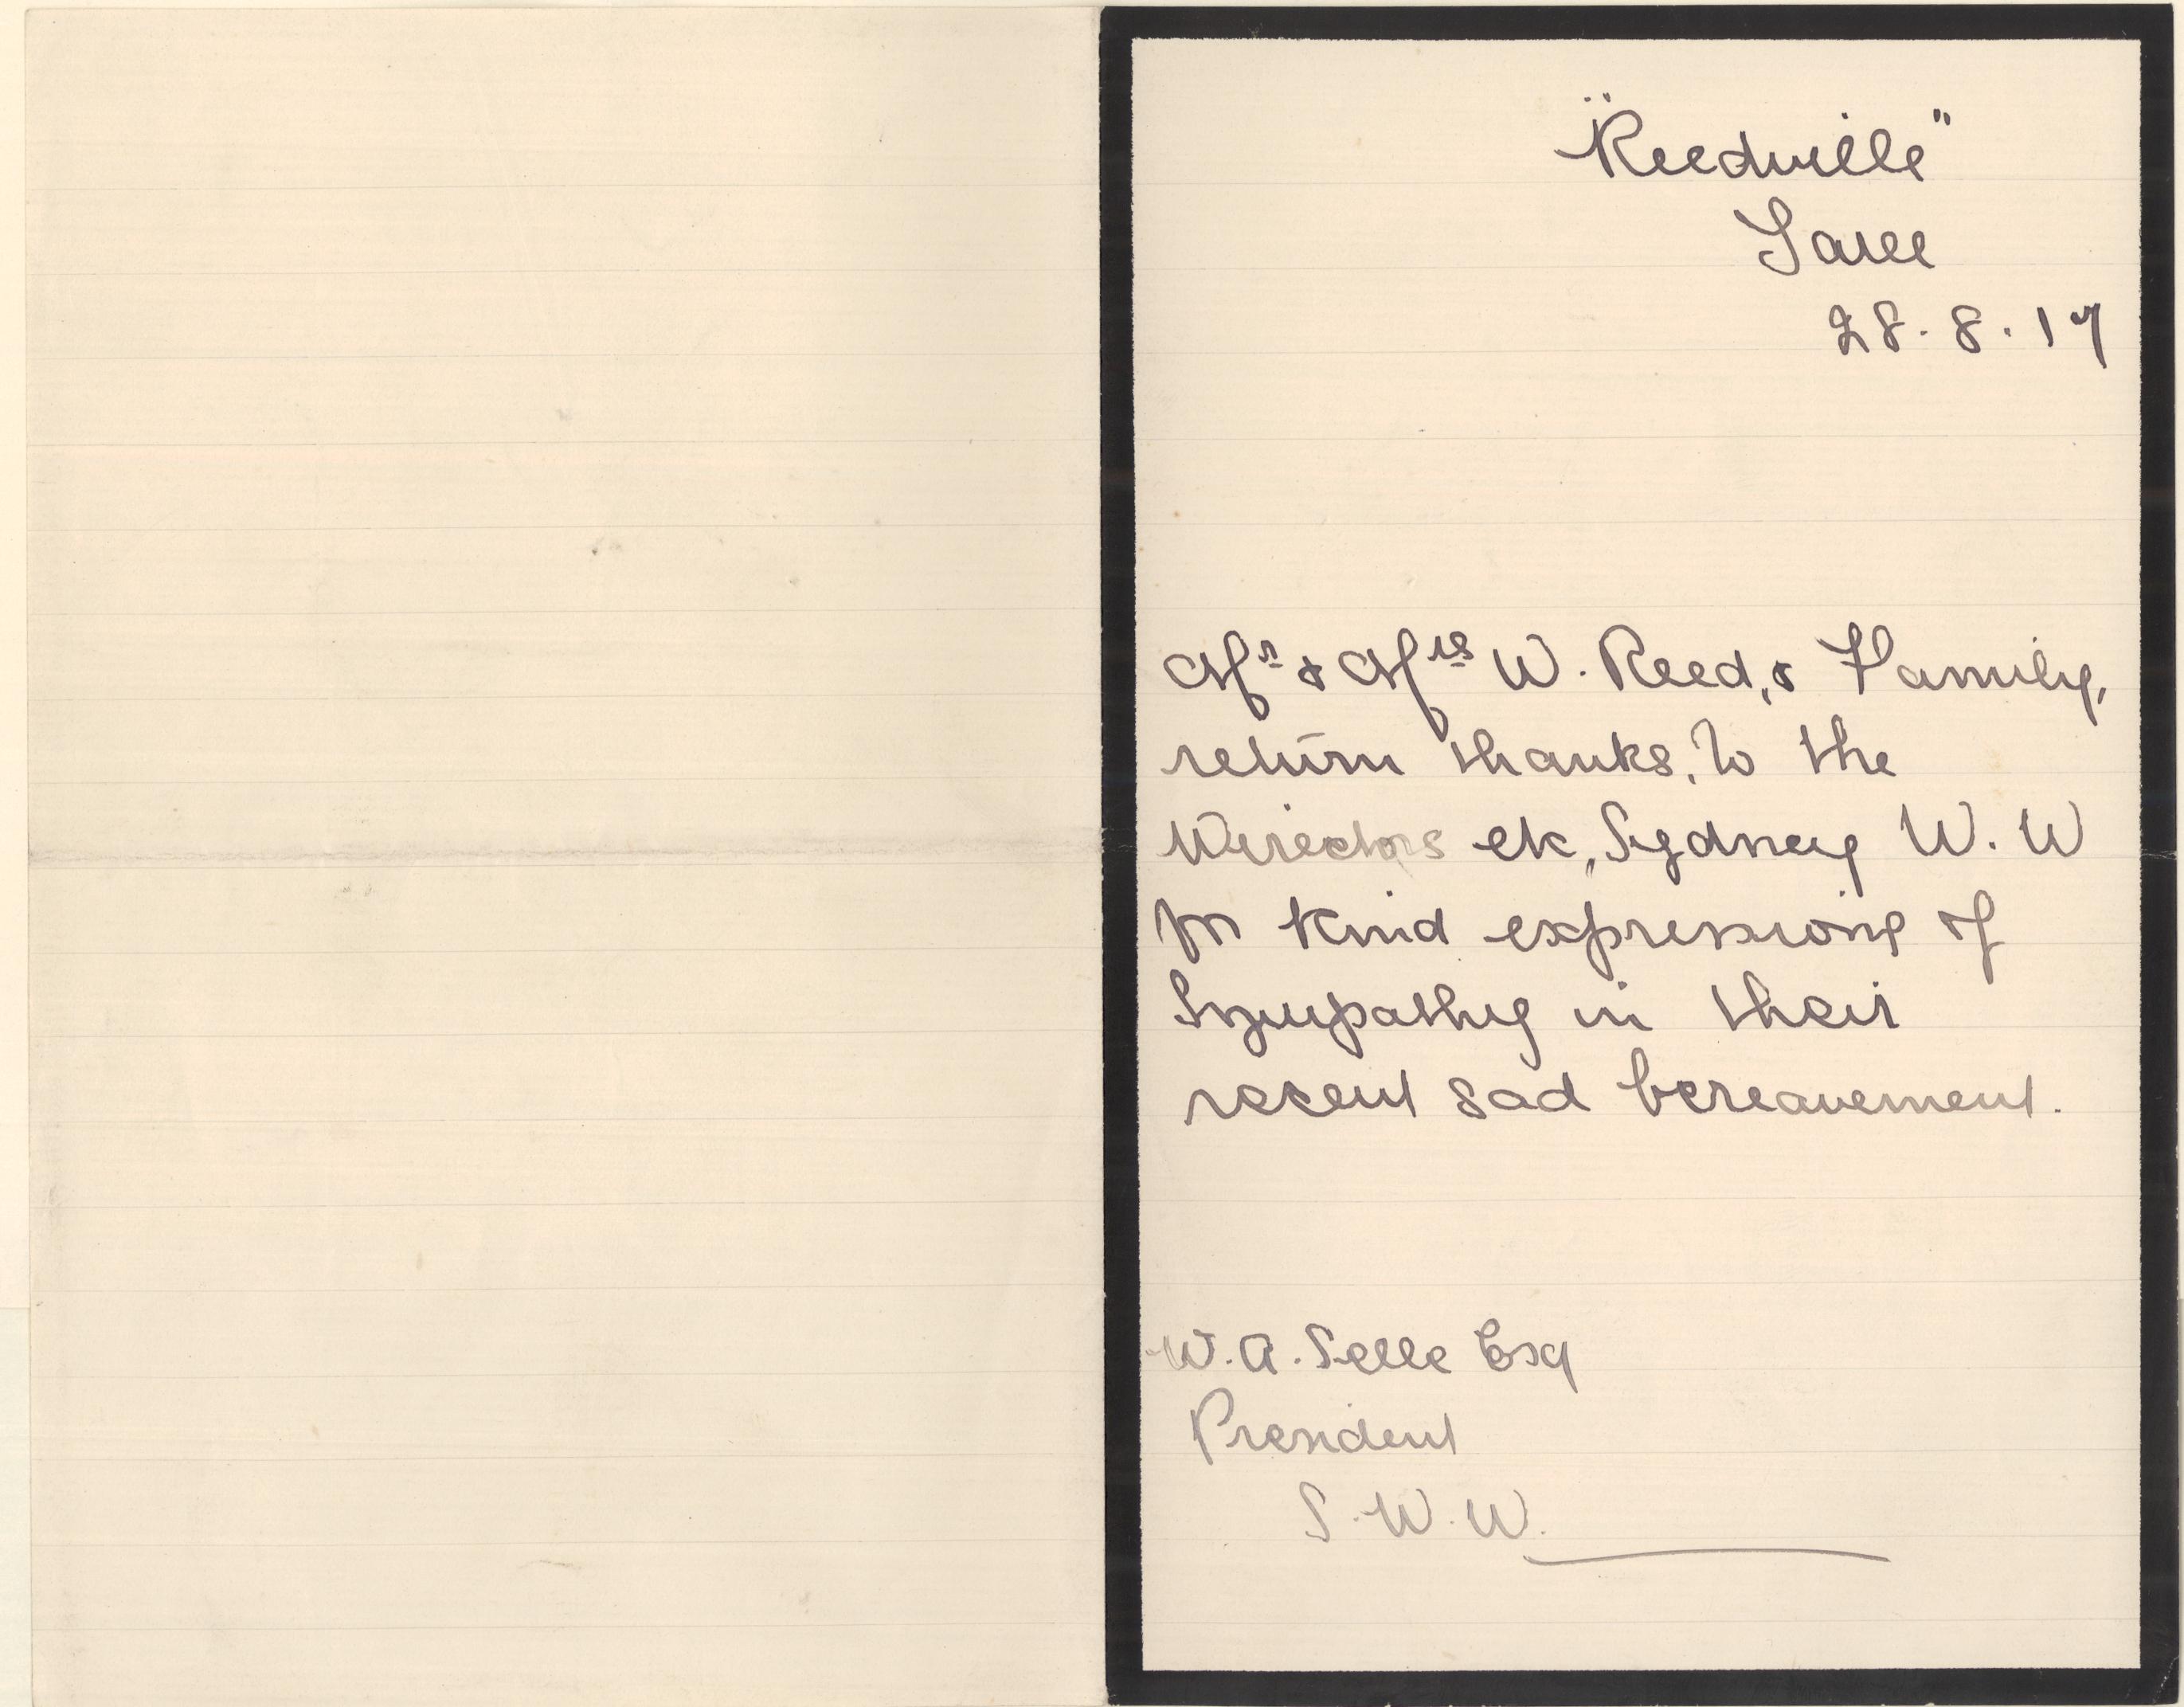 "Reedville"
Taree
28.8.17
Mr & Mrs W. Reed, & Family,
return thanks, to the
Directors etc, Sydney W. W
for kind expressions of
Sympathy in their
recent sad bereavement.
W. A. Selle Esq
President
S. W. W.